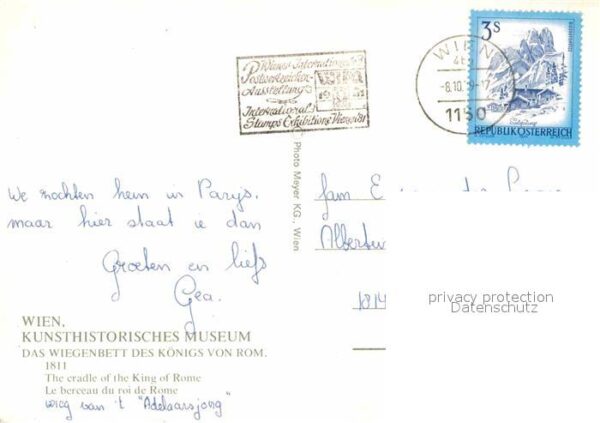 Wiener Internationale
Postwertzeichen-
Ausstellung
International
Stamps Exhibition Vienna
3S
WIEN
-8.10.
1150
REPUBLIK ÖSTERREICH
© Photo Meyer KG., Wien
We zochten hem in Parijs.
maar hier staat ie dan
Groeten en liefs
Gea.
fam
1814
privacy protection
Datenschutz
WIEN,
KUNSTHISTORISCHES MUSEUM
DAS WIEGENBETT DES KÖNIGS VON ROM.
1811
The cradle of the King of Rome
Le berceau du roi de Rome
wieg van 't "Adelaarsjong"